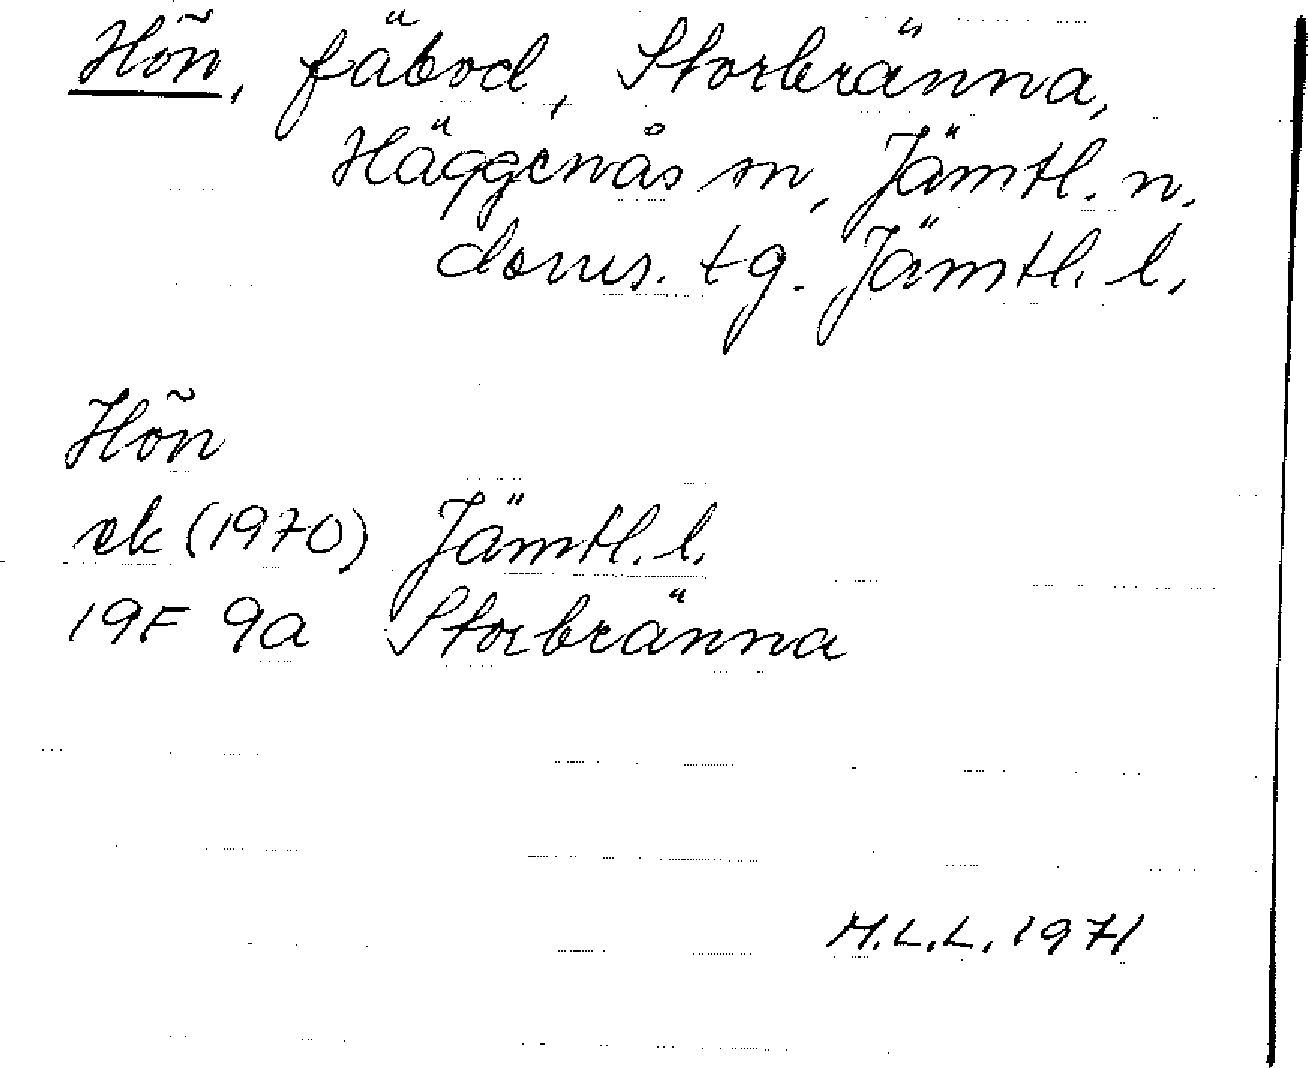 Hön, fäbod, Storbränna,
Häggenås sn, Jämtl. n.
doms. tg. Jämtl. l.
Hön
ek (1970) Jämtl. l.
19F 9a Storbränna
M.L.L. 1971